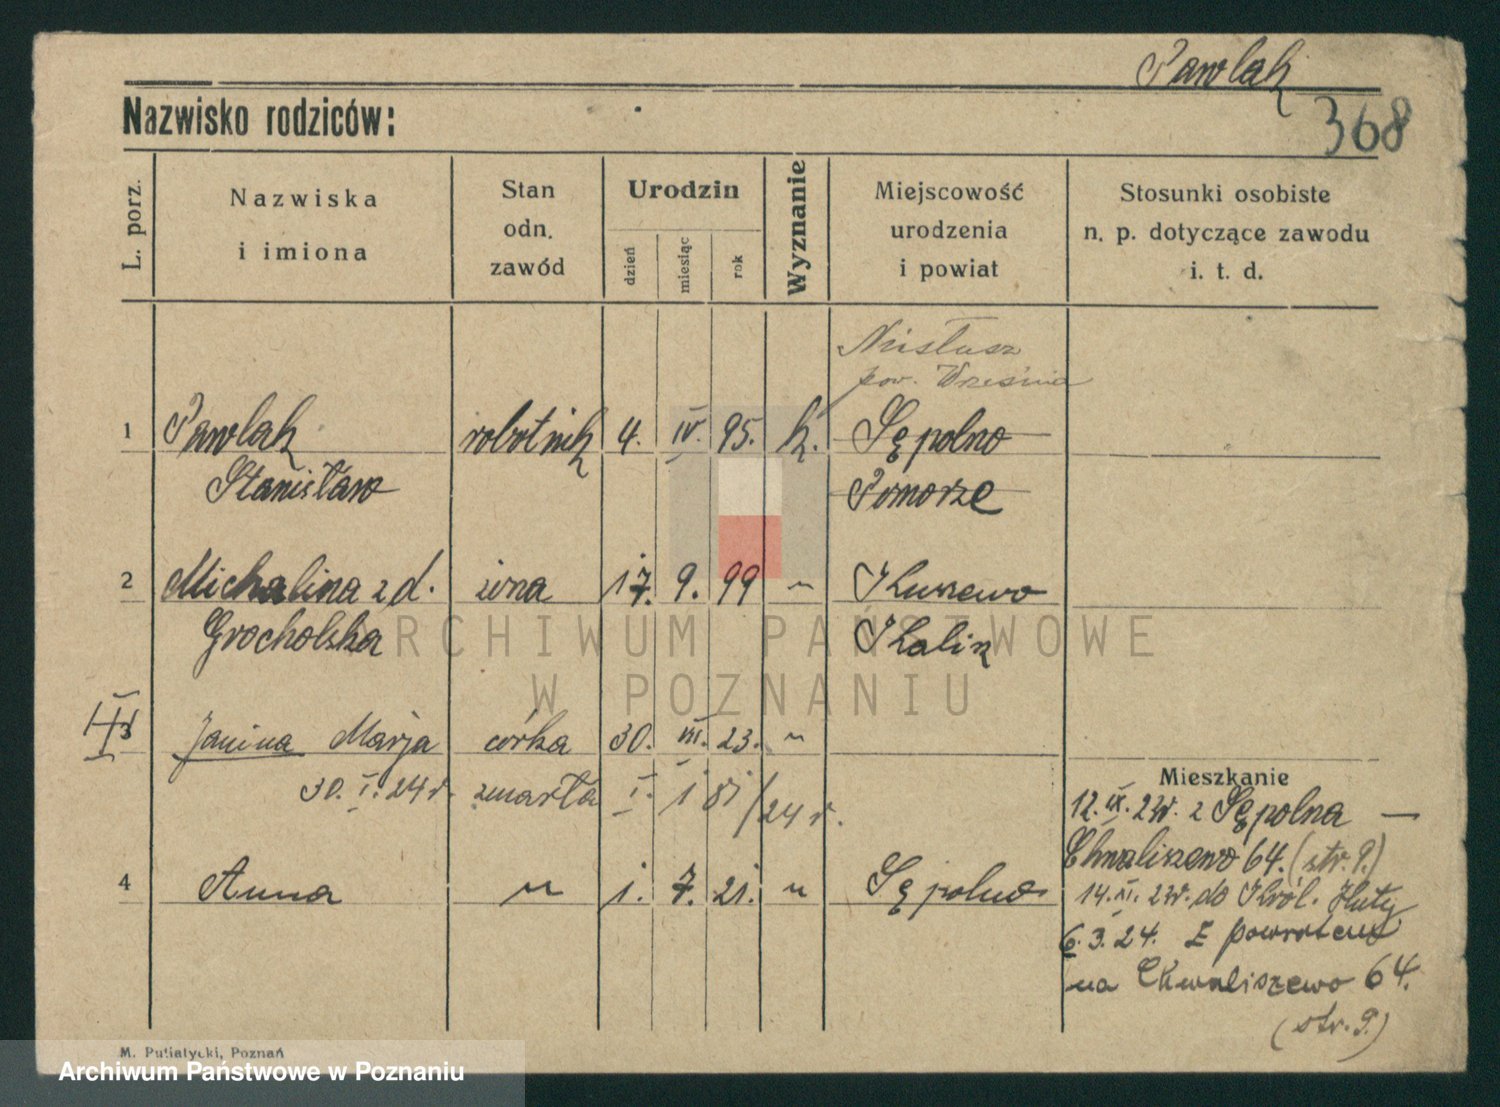 Pawlak
Nazwisko rodziców:
368
L. porz.
Nazwiska
i imiona
Stan
odn.
zawód
Urodzin
dzień
miesiąc
rok
Wyznanie
Miejscowość
urodzenia
i powiat
Stosunki osobiste
n. p. dotyczące zawodu
i. t. d.
pow. Września
1 Pawlak robotnik 4. IV. 95. k. Sępolno
Stanisław Pomorze
2 Michalina z d. żona 17. 9. 99 " Kuszewo
Grocholska Kalisz
3 Janina Marja córka 30. III. 23. "
30. I. 24 r. zmarła I. 1 81/24 r.
Mieszkanie
12. IX. 23r. z Sępolna —
Chwaliszewo 64. (str. 9.)
4 Anna " 1. 7. 21. " Sępolno
14. XI. 23r. do Król. Huty
6. 3. 24. Z powrotem
na Chwaliszewo 64.
(str. 9.)
M. Putiatycki, Poznań
ARCHIWUM PAŃSTWOWE
W POZNANIU
Archiwum Państwowe w Poznaniu